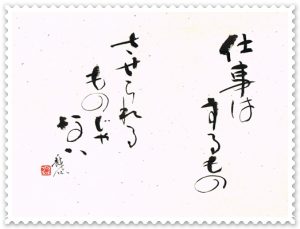 仕事は
するもの
させられる
ものじゃ
ない